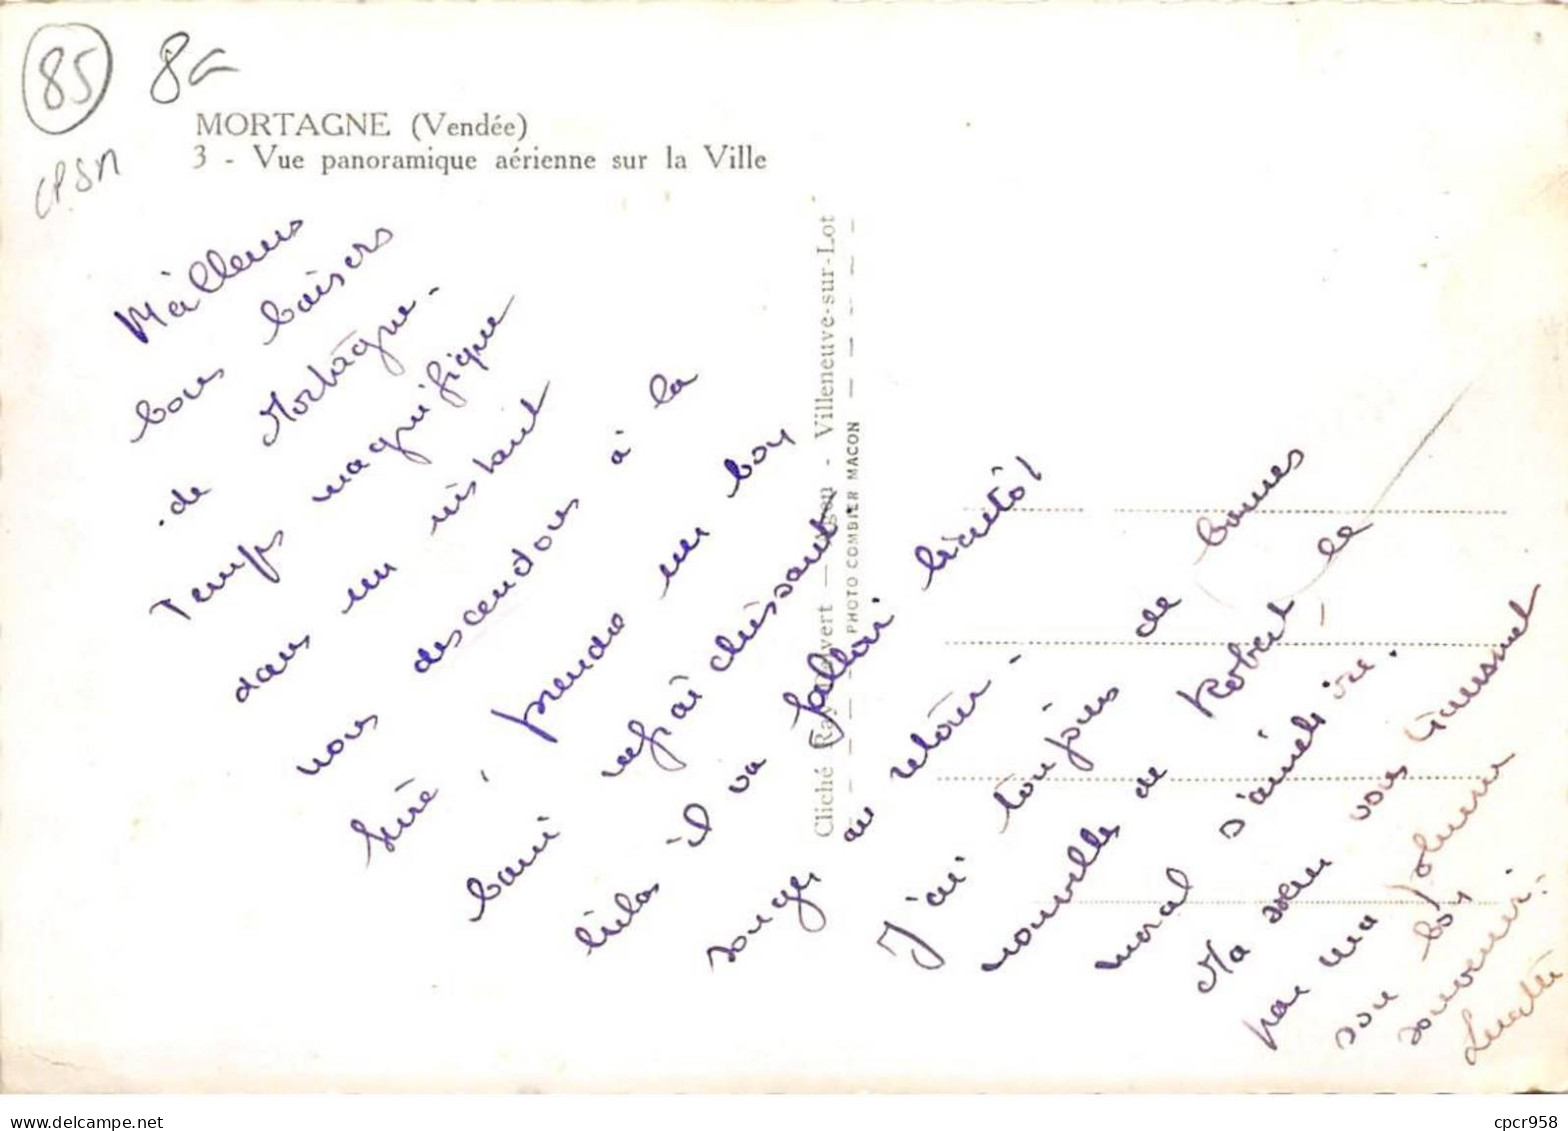 85 8€
CPSM
MORTAGNE (Vendée)
3 - Vue panoramique aérienne sur la Ville
Meilleurs
bons baisers
de Mortagne.
Temps magnifique
dans un instant
nous descendons à la
prendre un bon
bain rafraichissant,
hélas il va falloir bientôt
songer au retour.
J'ai toujours de bonnes
nouvelles de Robert, le
moral s'améliore.
Ma sœur vous transmet
par ma plume
son bon
souvenir.
Cliché Ray Delvert — Agen - Villeneuve-sur-Lot
PHOTO COMBIER MACON
www.delcampe.net
cpcr958